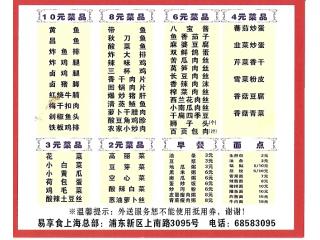 10元菜品
黄鱼
昌鱼
炸鱼排
炸鸡腿
卤鸡腿
卤猪排
红烧牛腩
梅干扣肉
剁椒鱼头
铁板鸡排
8元菜品
带鱼
秋刀鱼
酸菜鱼
炸大排
辣味鸡丁
三杯鸡
香干肉片
回锅肉片
爆炒猪肝
清蒸鲢鱼
萝卜干腊肉
农家小炒肉
6元菜品
八宝酱
鱼香茄子
麻婆豆腐
鱼香肉丝
青椒肉丝
莴笋肉丝
长豆肉丝
香辣肉丝
榨菜肉丝
西兰花肉片
小炒素鸡
干扁四季豆
狮子头
萝卜肉包
4元菜品
蕃茄炒蛋
韭菜炒蛋
芹菜香干
雪菜粉皮
香菇豆腐
香菇青菜
3元菜品
花菜
小白菜
小黄瓜
荷包蛋
鸡毛菜
酸辣土豆丝
2元菜品
高丽菜
豆芽菜
空心菜
酸辣白菜
葱油萝卜丝
早餐
面点
※温馨提示：外送服务恕不能使用抵用券，谢谢!
易享食上海总部：浦东新区上南路3095号 电话：68583095